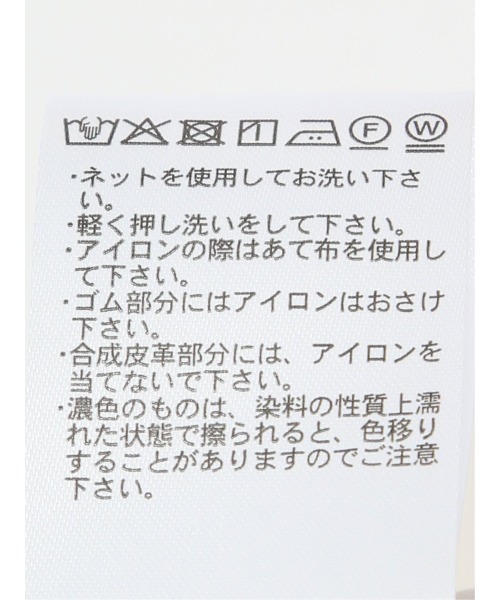 F W
・ネットを使用してお洗い下さ
い。
・軽く押し洗いをして下さい。
・アイロンの際はあて布を使用し
て下さい。
・ゴム部分にはアイロンはおさけ
下さい。
・合成皮革部分には、アイロンを
当てないで下さい。
・濃色のものは、染料の性質上濡
れた状態で擦られると、色移り
することがありますのでご注意
下さい。